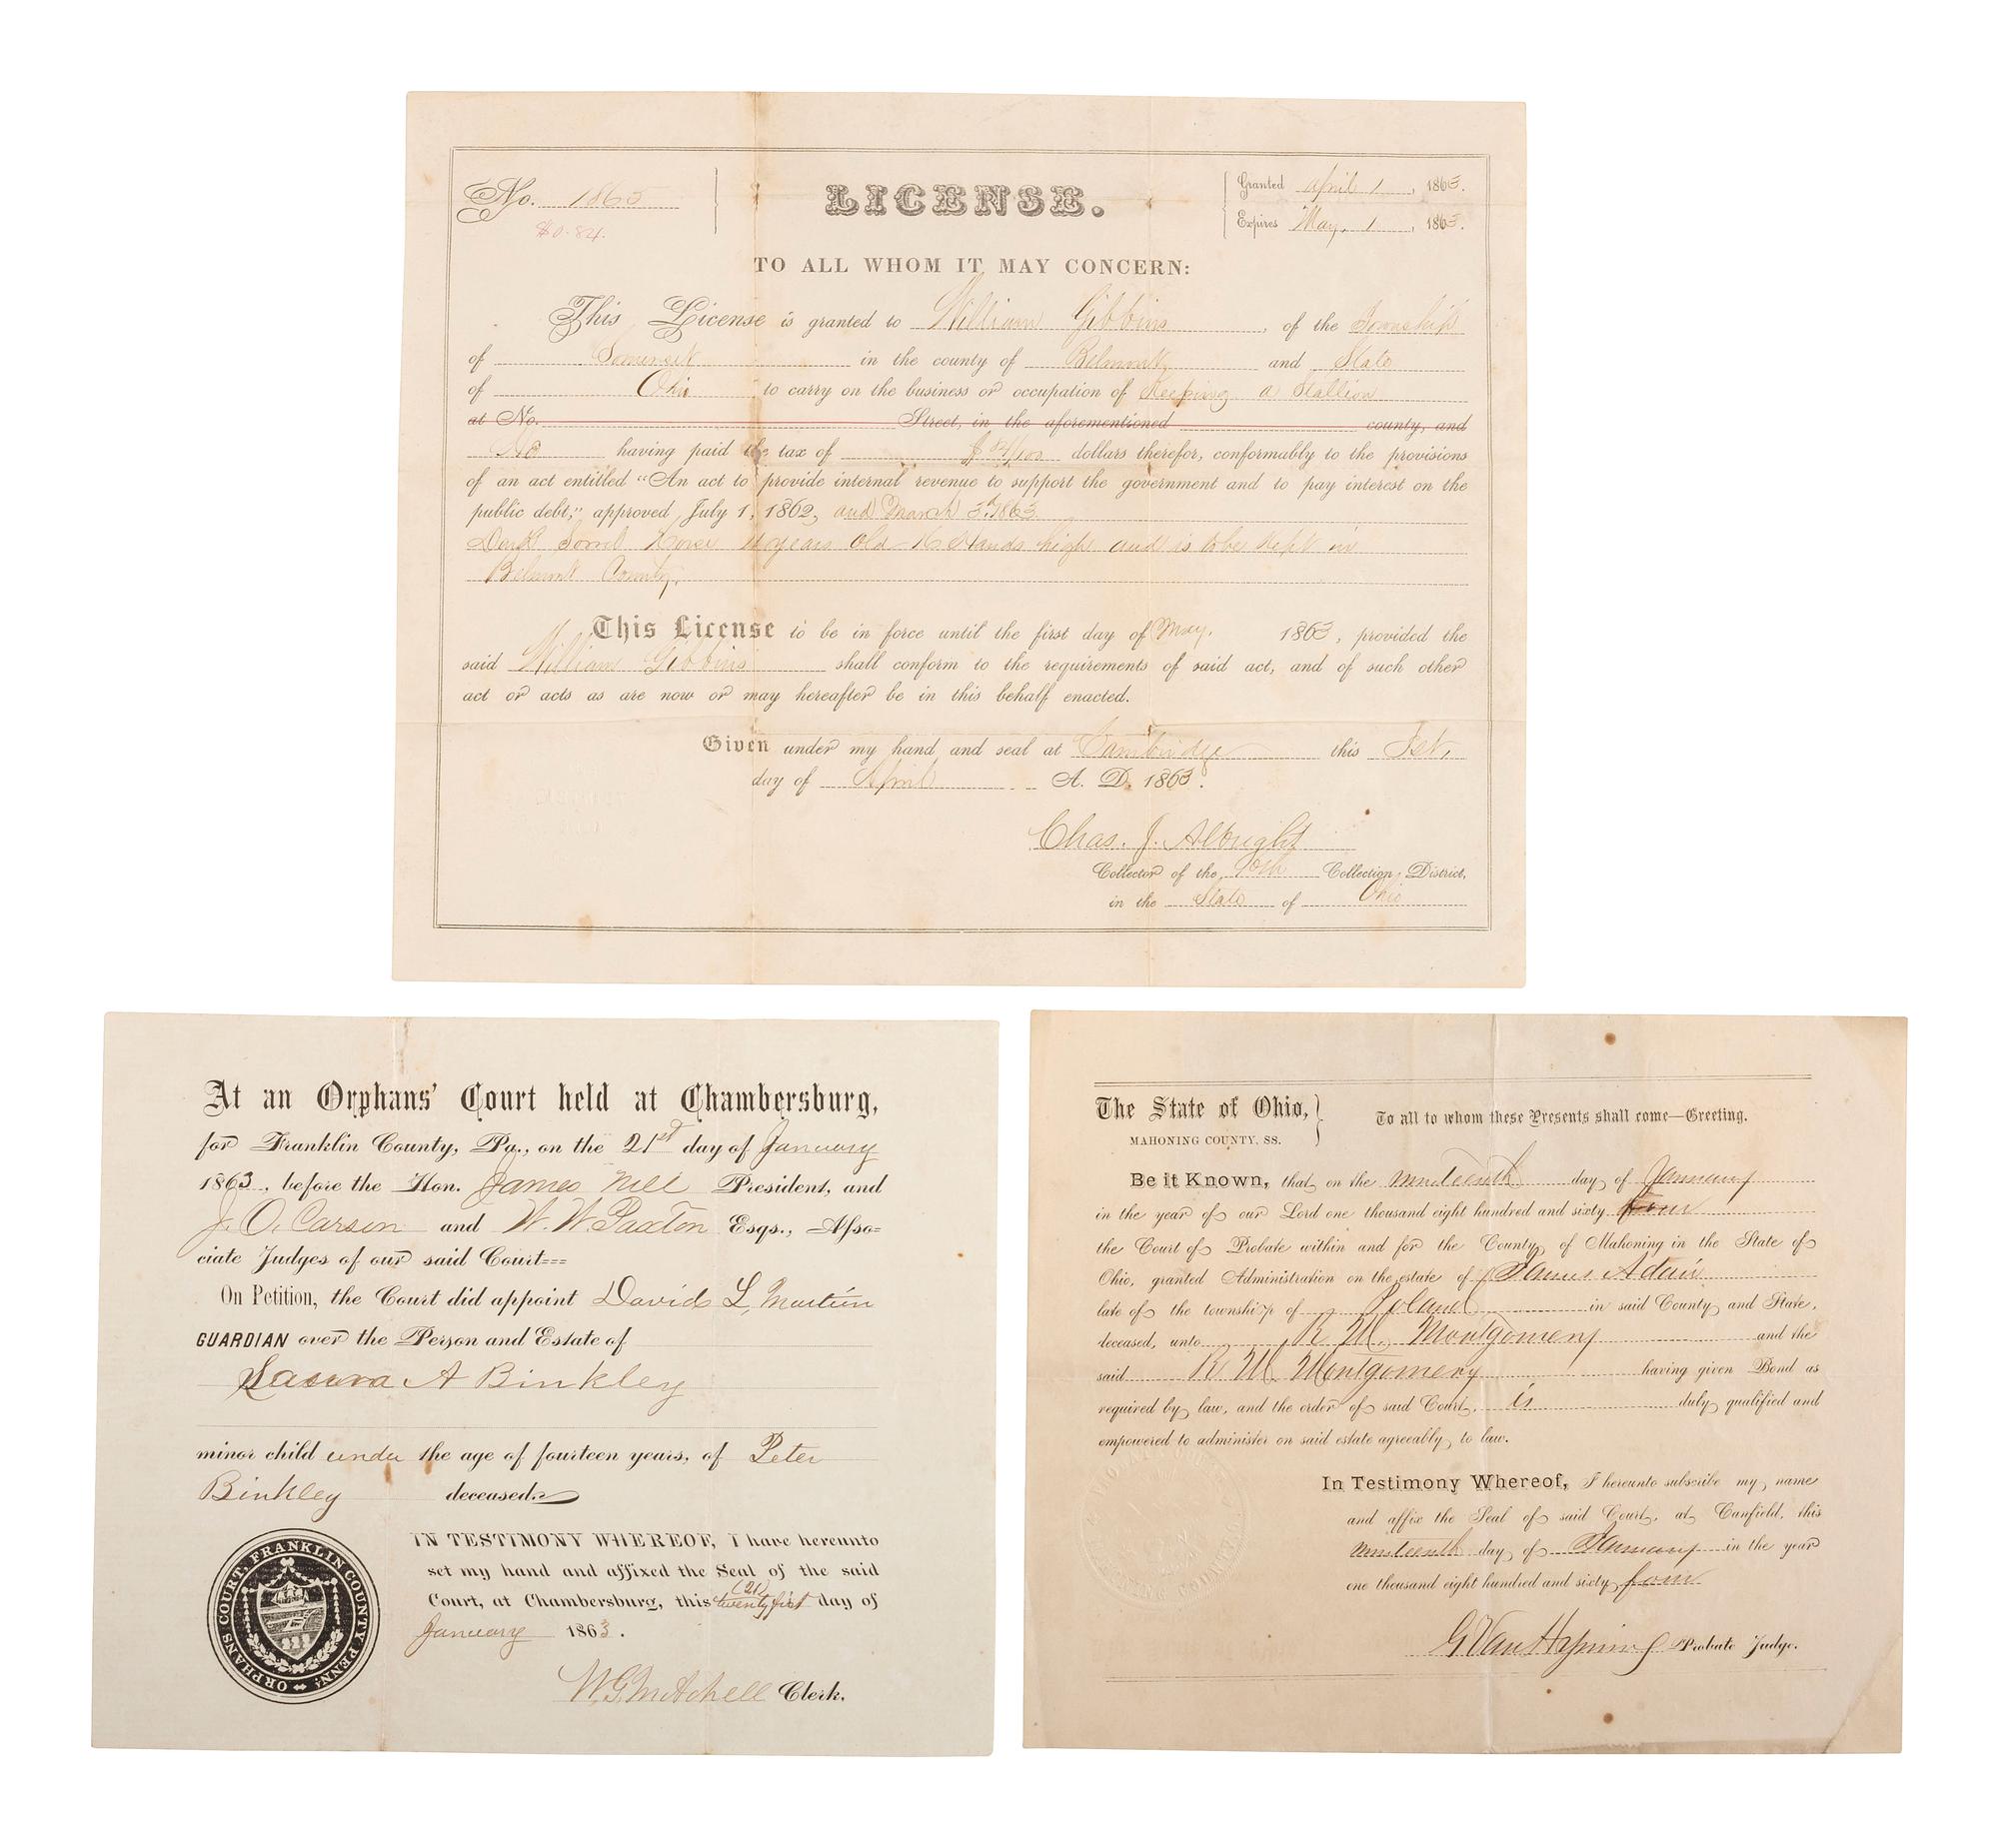 No. 1865
$0.84.
LICENSE.
Granted April 1, 1863.
Expires May, 1, 1863.
TO ALL WHOM IT MAY CONCERN:
This License is granted to William Gibbins, of the Township
of Somerset in the county of Belmont and State
of Ohio to carry on the business or occupation of Keeping a Stallion
at No. Street, in the aforementioned county, and
having paid the tax of $ 84/100 dollars therefor, conformably to the provisions
of an act entitled "An act to provide internal revenue to support the government and to pay interest on the
public debt," approved July 1, 1862, and March 3d, 1863
Dark Sorrel Horse years old 16 Hands high and is to be kept in
Belmont County.
This License to be in force until the first day of May. 1863, provided the
said William Gibbins shall conform to the requirements of said act, and of such other
act or acts as are now or may hereafter be in this behalf enacted.
Given under my hand and seal at Cambridge this 1st,
day of April A. D. 1863.
Chas. J. Albright
Collector of the Collection District,
in the State of Ohio
At an Orphans' Court held at Chambersburg,
for Franklin County, Pa., on the 21st day of January
1863, before the Hon. James Nill President, and
J. O. Carson and W. W. Paxton Esqs., Asso=
ciate Judges of our said Court===
On Petition, the Court did appoint David L. Martin
GUARDIAN over the Person and Estate of
A Binkley
minor child under the age of fourteen years, of Peter
Binkley deceased.
ORPHANS COURT, FRANKLIN COUNTY PENNA.
IN TESTIMONY WHEREOF, I have hereunto
set my hand and affixed the Seal of the said
(21)
Court, at Chambersburg, this twenty first day of
January 1863.
W. G. Mitchell Clerk.
The State of Ohio,
MAHONING COUNTY, SS.
To all to whom these Presents shall come—Greeting.
Be it Known, that on the nineteenth day of January
in the year of our Lord one thousand eight hundred and sixty four
the Court of Probate within and for the County of Mahoning in the State of
Ohio, granted Administration on the estate of James Adair
late of the township of Poland in said County and State,
deceased, unto R. M. Montgomery and the
said R. M. Montgomery having given Bond as
required by law, and the order of said Court, is duly qualified and
empowered to administer on said estate agreeably to law.
In Testimony Whereof, I hereunto subscribe my name
and affix the Seal of said Court, at Canfield, this
nineteenth day of January in the year
one thousand eight hundred and sixty four
G Van Hyning Probate Judge.